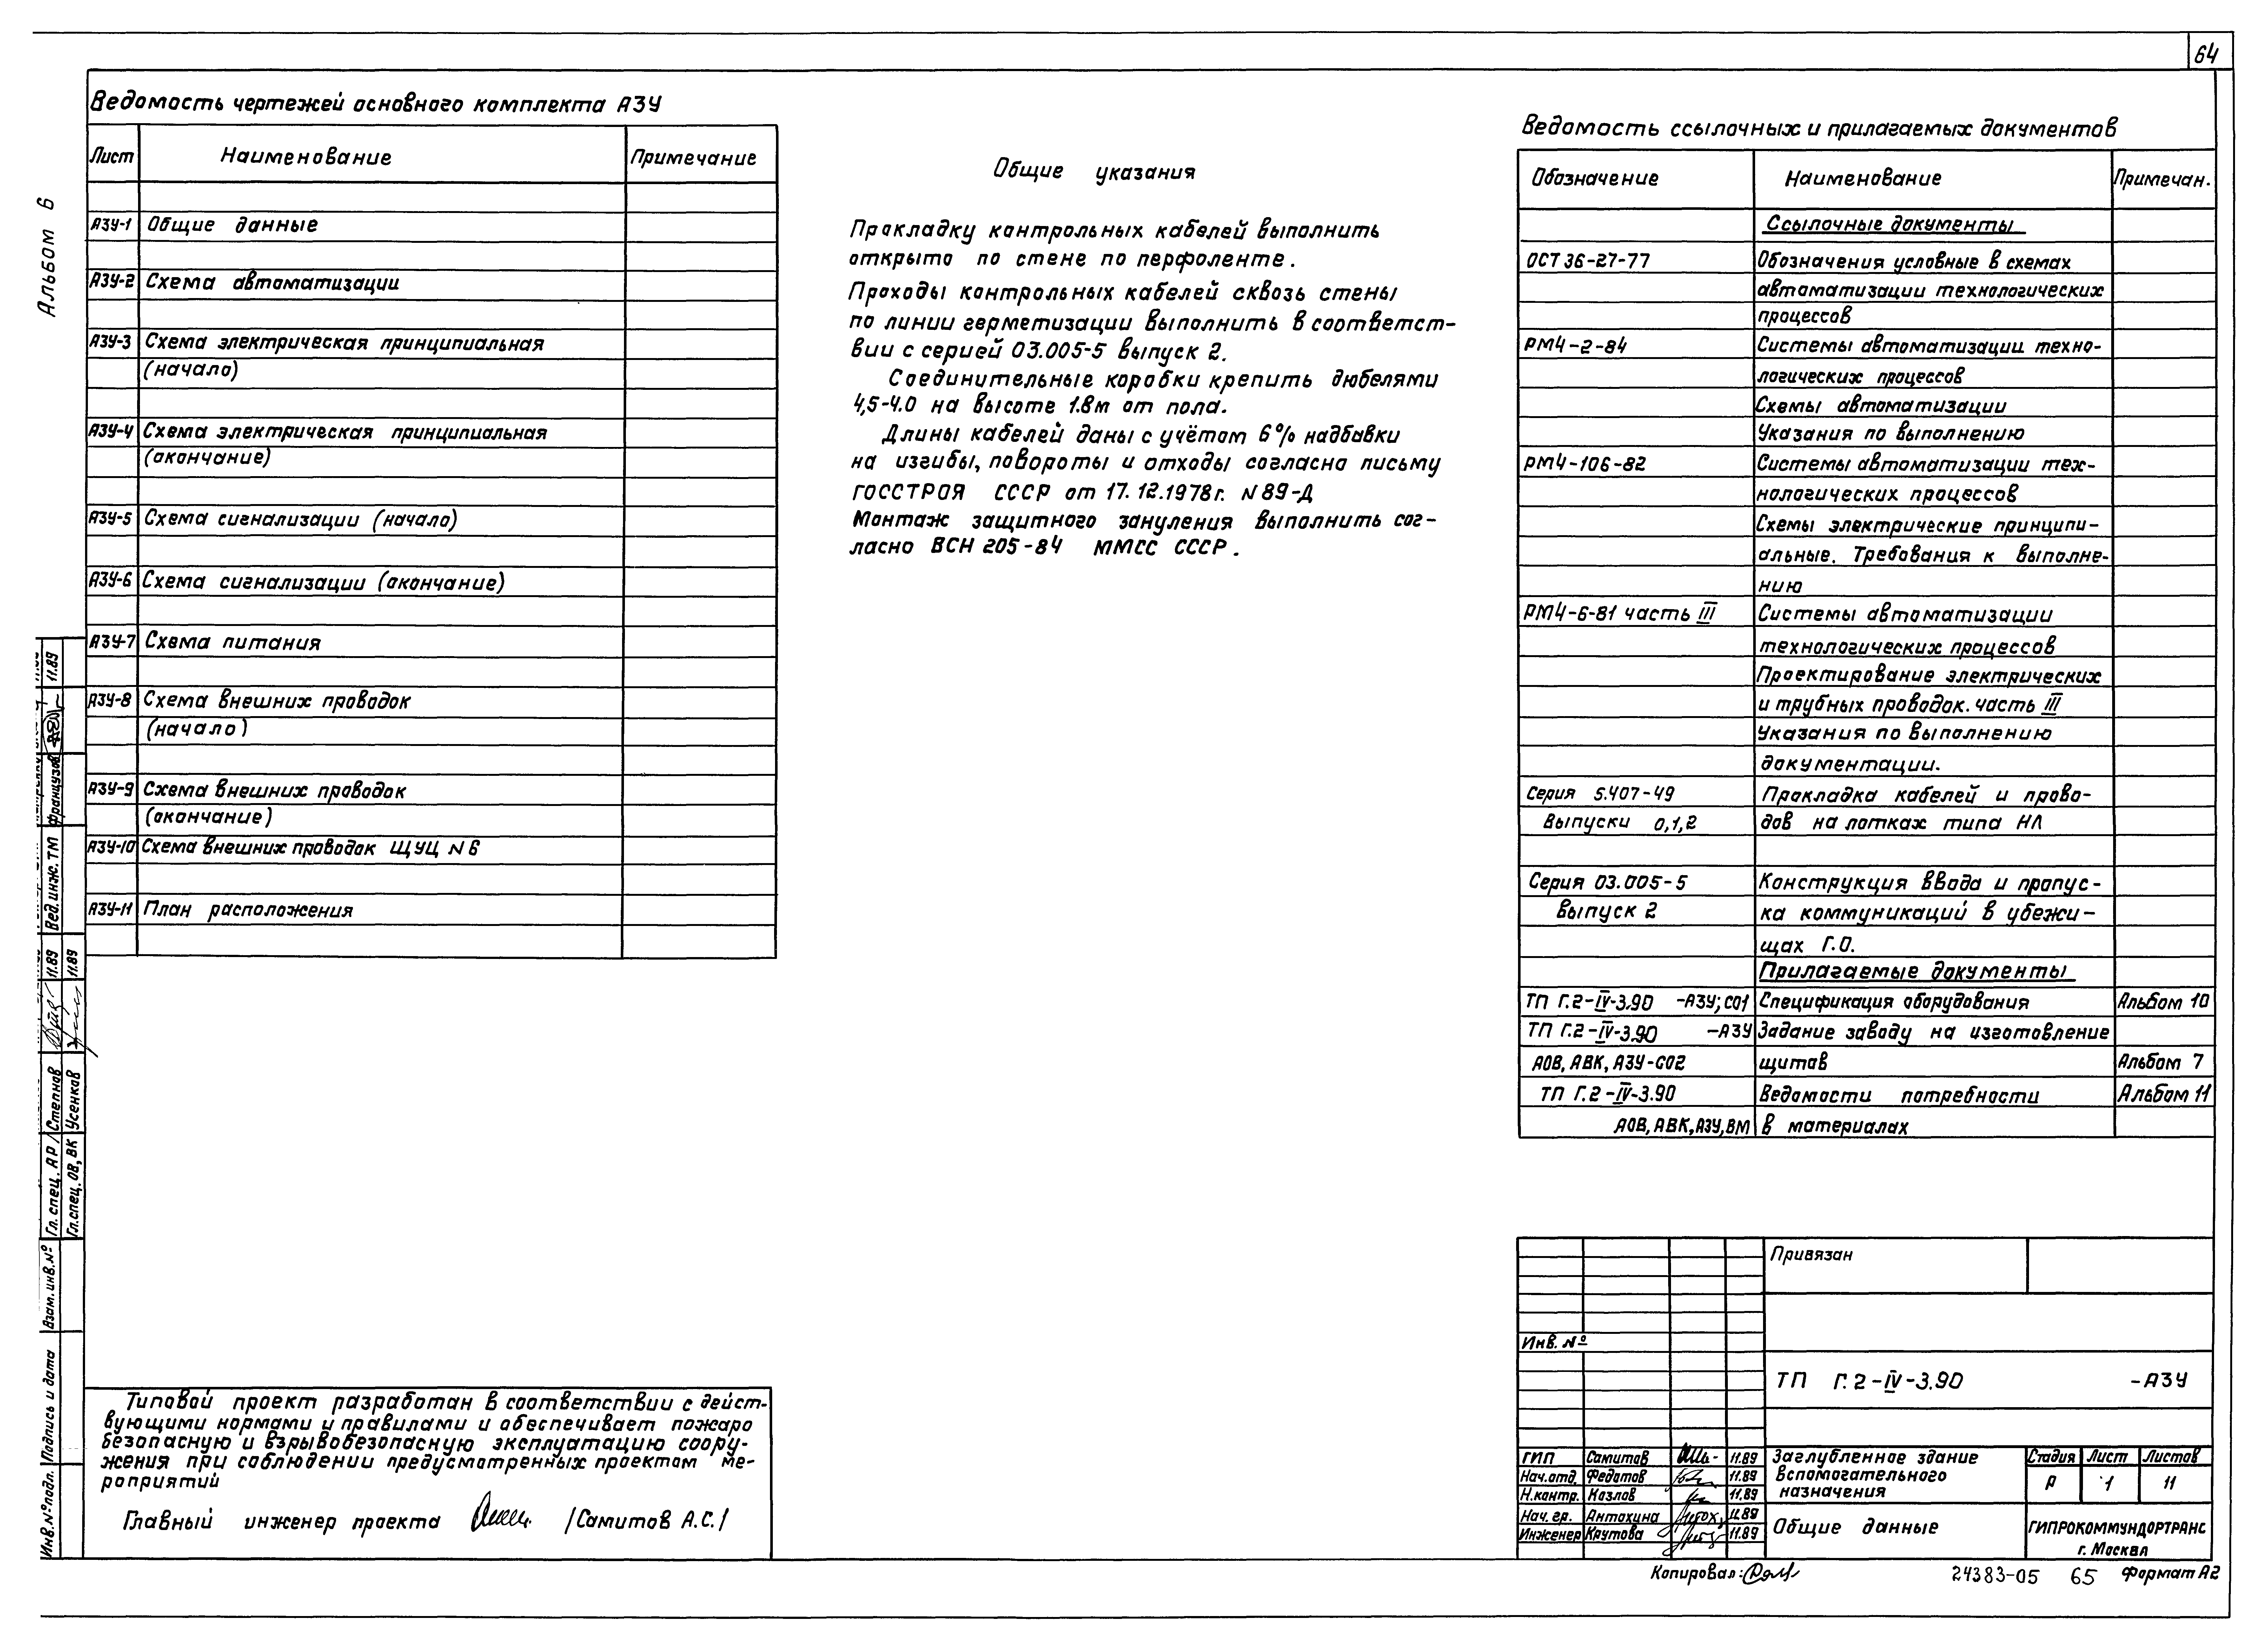 64
Альбом 6
Ведомость чертежей основного комплекта АЗУ
Лист Наименование Примечание
АЗУ-1 Общие данные
АЗУ-2 Схема автоматизации
АЗУ-3 Схема электрическая принципиальная
(начало)
АЗУ-4 Схема электрическая принципиальная
(окончание)
АЗУ-5 Схема сигнализации (начало)
АЗУ-6 Схема сигнализации (окончание)
АЗУ-7 Схема питания
АЗУ-8 Схема внешних проводок
(начало)
АЗУ-9 Схема внешних проводок
(окончание)
АЗУ-10 Схема внешних проводок ЩУЦ N6
АЗУ-11 План расположения
Общие указания
Прокладку контрольных кабелей выполнить
открыто по стене по перфоленте.
Проходы контрольных кабелей сквозь стены
по линии герметизации выполнить в соответст-
вии с серией 03.005-5 выпуск 2.
Соединительные коробки крепить дюбелями
4,5-4.0 на высоте 1.8м от пола.
Длины кабелей даны с учётом 6% надбавки
на изгибы, повороты и отходы согласно письму
ГОССТРОЯ СССР от 17.12.1978г. N 89-Д
Монтаж защитного зануления выполнить сог-
ласно ВСН 205-84 ММСС СССР.
Ведомость ссылочных и прилагаемых документов
Обозначение Наименование Примечан.
Ссылочные документы
ОСТ 36-27-77 Обозначения условные в схемах
автоматизации технологических
процессов
РМ4-2-84 Системы автоматизации техно-
логических процессов
Схемы автоматизации
Указания по выполнению
РМ4-106-82 Системы автоматизации тех-
нологических процессов
Схемы электрические принципи-
альные. Требования к выполне-
нию
РМ4-6-81 часть III Системы автоматизации
технологических процессов
Проектирование электрических
и трубных проводок. часть III
Указания по выполнению
документации.
Серия 5.407-49 Прокладка кабелей и прово-
Выпуски 0,1,2 дов на лотках типа НЛ
Серия 03.005-5 Конструкция ввода и пропус-
Выпуск 2 ка коммуникаций в убежи-
щах Г.О.
Прилагаемые документы
ТП Г.2-IV-3.90 -АЗУ; СО1 Спецификация оборудования Альбом 10
ТП Г.2-IV-3.90 -АЗУ Задание заводу на изготовление
АОВ, АВК, АЗУ-СО2 щитов Альбом 7
ТП Г.2-IV-3.90 Ведомости потребности Альбом 11
АОВ, АВК, АЗУ, ВМ в материалах
Типовой проект разработан в соответствии с дейст-
вующими нормами и правилами и обеспечивает пожаро
безопасную и взрывобезопасную эксплуатацию соору-
жения при соблюдении предусмотренных проектом ме-
роприятий
Главный инженер проекта /Самитов А.С./
Французов 11.89
Вед. инж. ТМ
Гл. спец. АР Степнов 11.89
Гл. спец. ОВ, ВК Усенков 11.89
Взам. инв. №
Подпись и дата
Инв. № подл.
Привязан
Инв. №
ТП Г.2-IV-3.90 -АЗУ
ГИП Самитов 11.89
Нач. отд. Федотов 11.89
Н. контр. Козлов 11.89
Нач. гр. Антохина 11.89
Инженер Крутова 11.89
Заглубленное здание
вспомогательного
назначения
Стадия Лист Листов
Р 1 11
Общие данные
ГИПРОКОММУНДОРТРАНС
г. Москва
Копировал:
24383-05 65 Формат А2